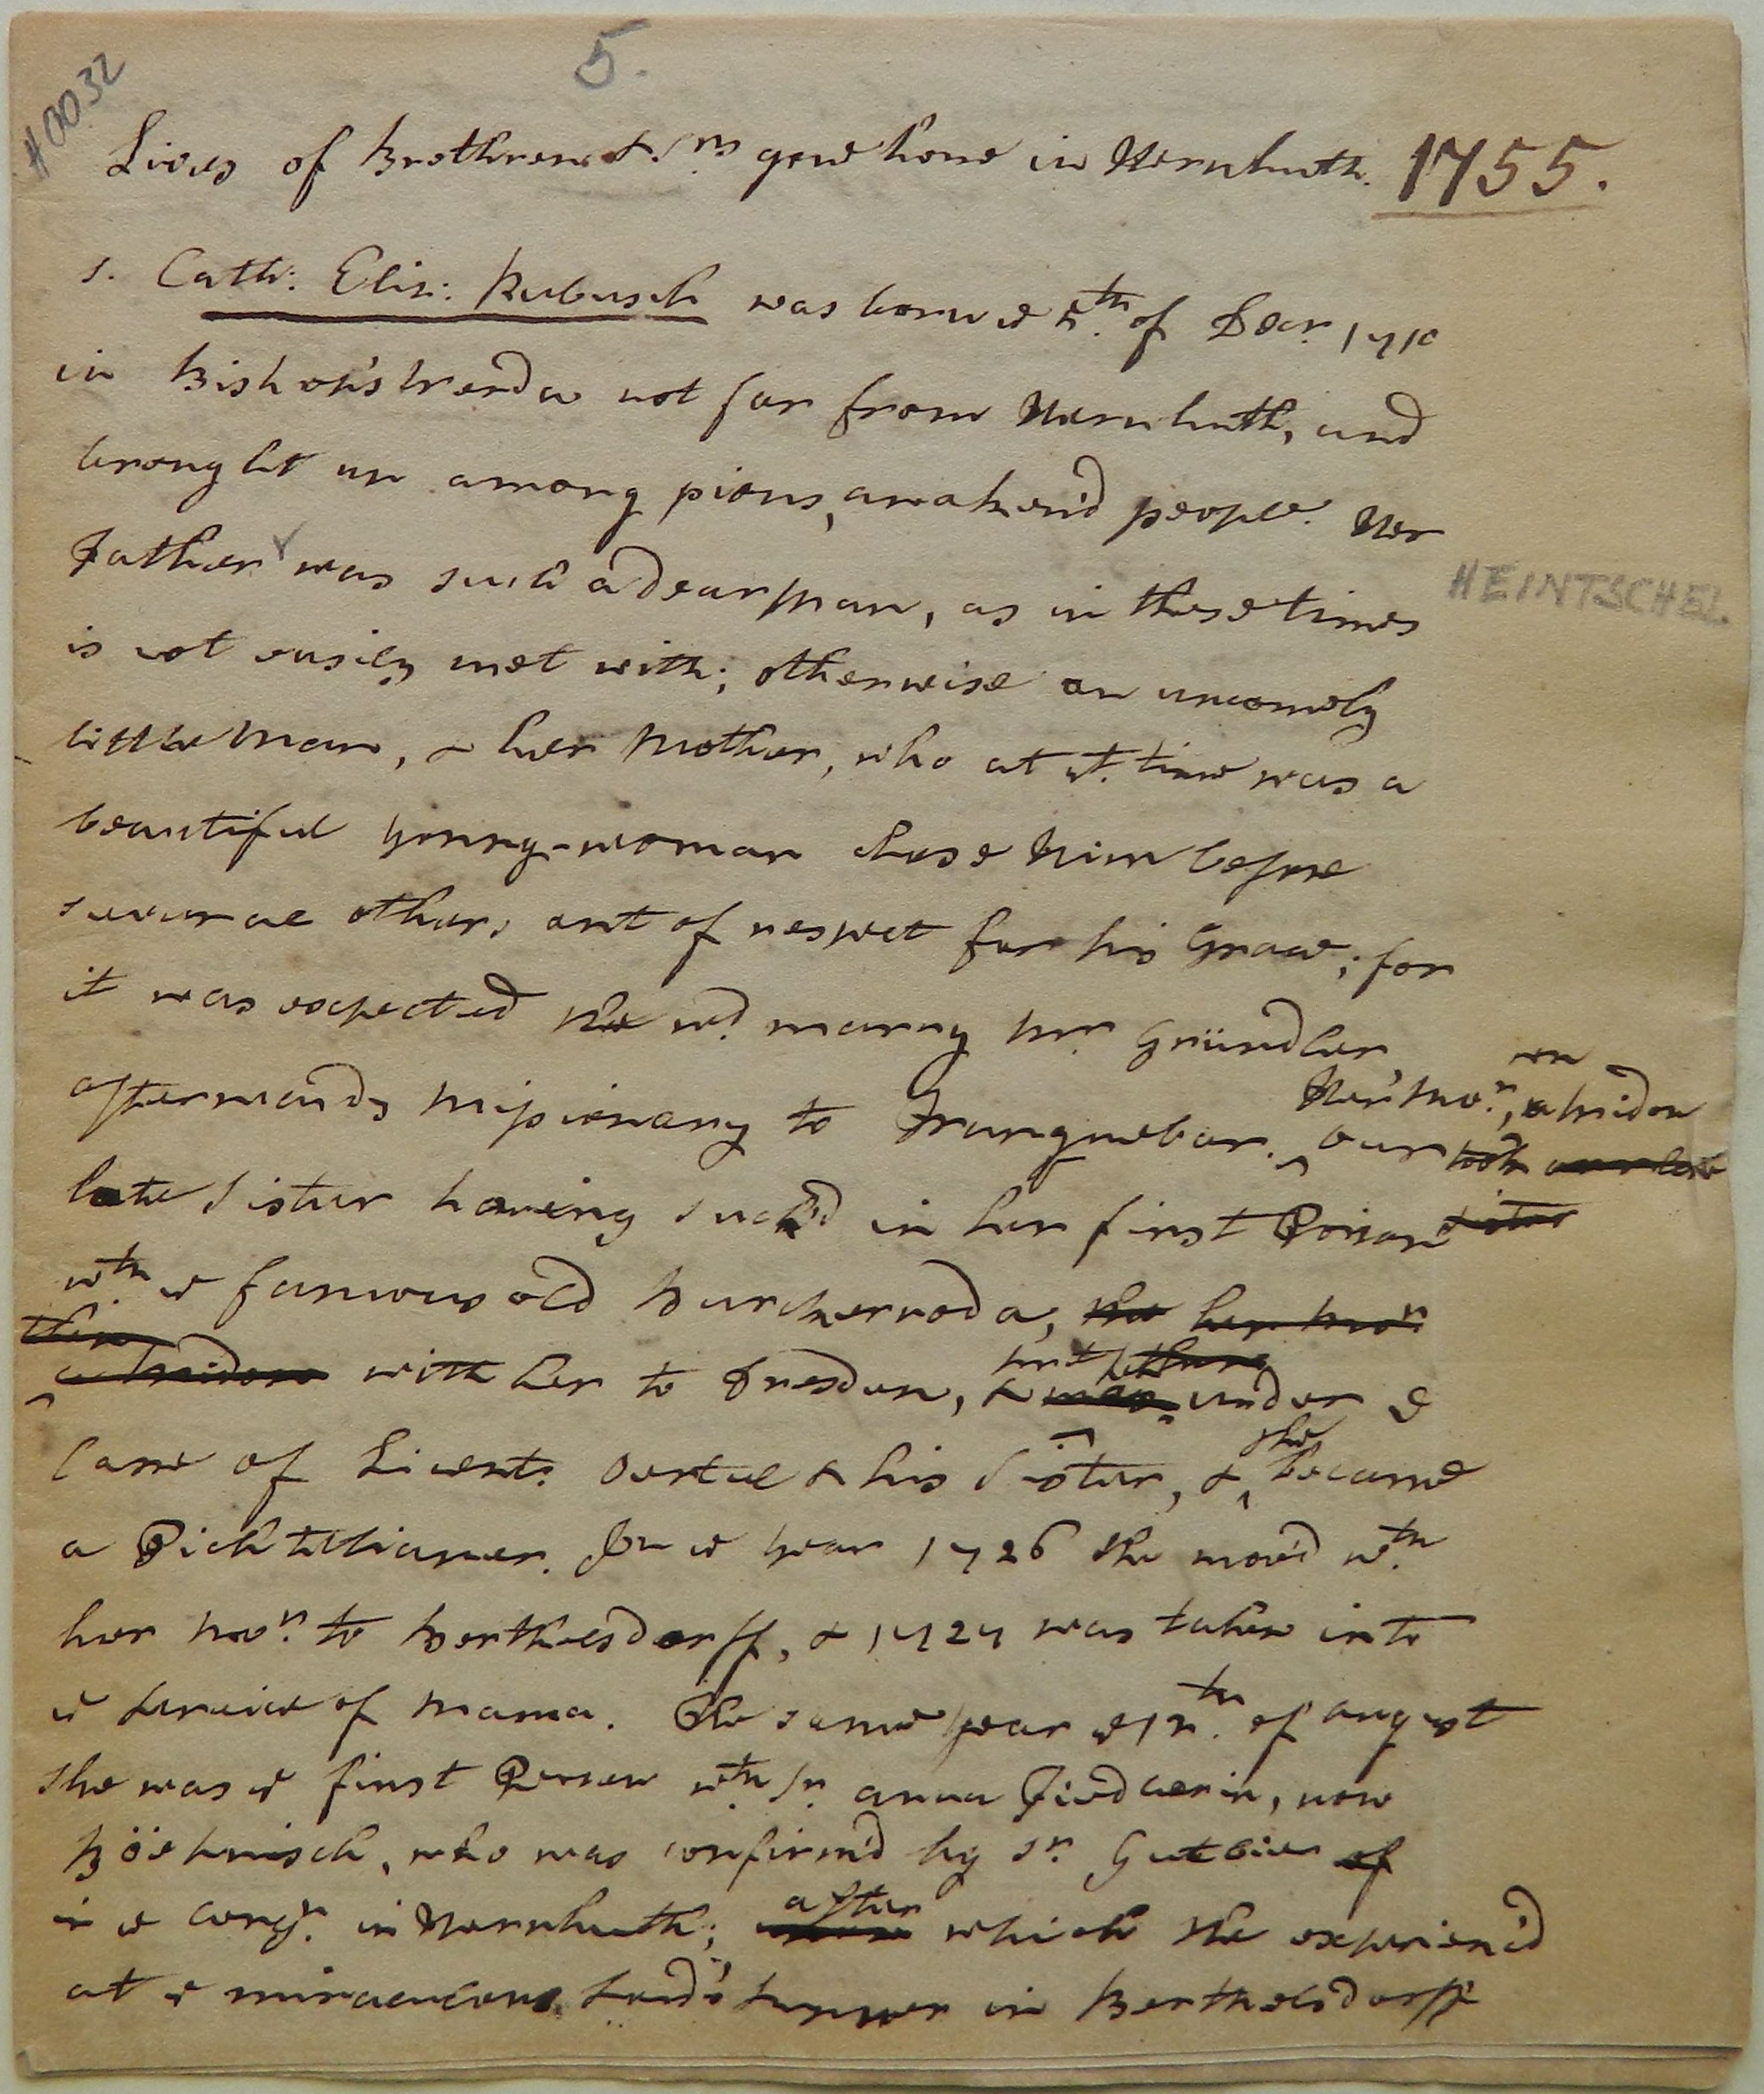 #0032
5.
Lives of Brethren & Srs. gone home in Hernhuth. 1755.
1. Cath: Elis: Kubusch was born ye 5th. of Decr. 1710
in Bishop's Werda not far from Hernhuth, and
brought up among pious, awaken'd people. Her
Father was such a dear Man, as in these times
HEINTSCHEL.
is not easily met with; otherwise an uncomely
little Man, & her Mother, who at yt. time was a
beautiful young-woman chose Him before
several others out of respect for his Grace; for
it was expected she wd. marry Mr. Gründler
afterwards Missionary to Tranquebar. Her Mor., a Widow Our took our late
late Sister having suck'd in her first Poison Sister
wth. ye famous old Burckerroda, the her Mor.
a Widow with her to Dresden, & was put under ye
Care of Licent: Oertel & his Sister, & she became
a Gichtelianer. In ye year 1726 she mov'd wth.
her Mor. to Berthelsdorff, & 1727 was taken into
ye Service of Mama. The same year ye 12th. of August
she was ye first Person wth. Sr. Anna Fiedlerin, now
Böehnisch, who was confirm'd by Sr. Gutbier of
in ye Congn. in Hernhuth; after which she experienc'd
at ye miraculous Lord's Supper in Berthelsdorff